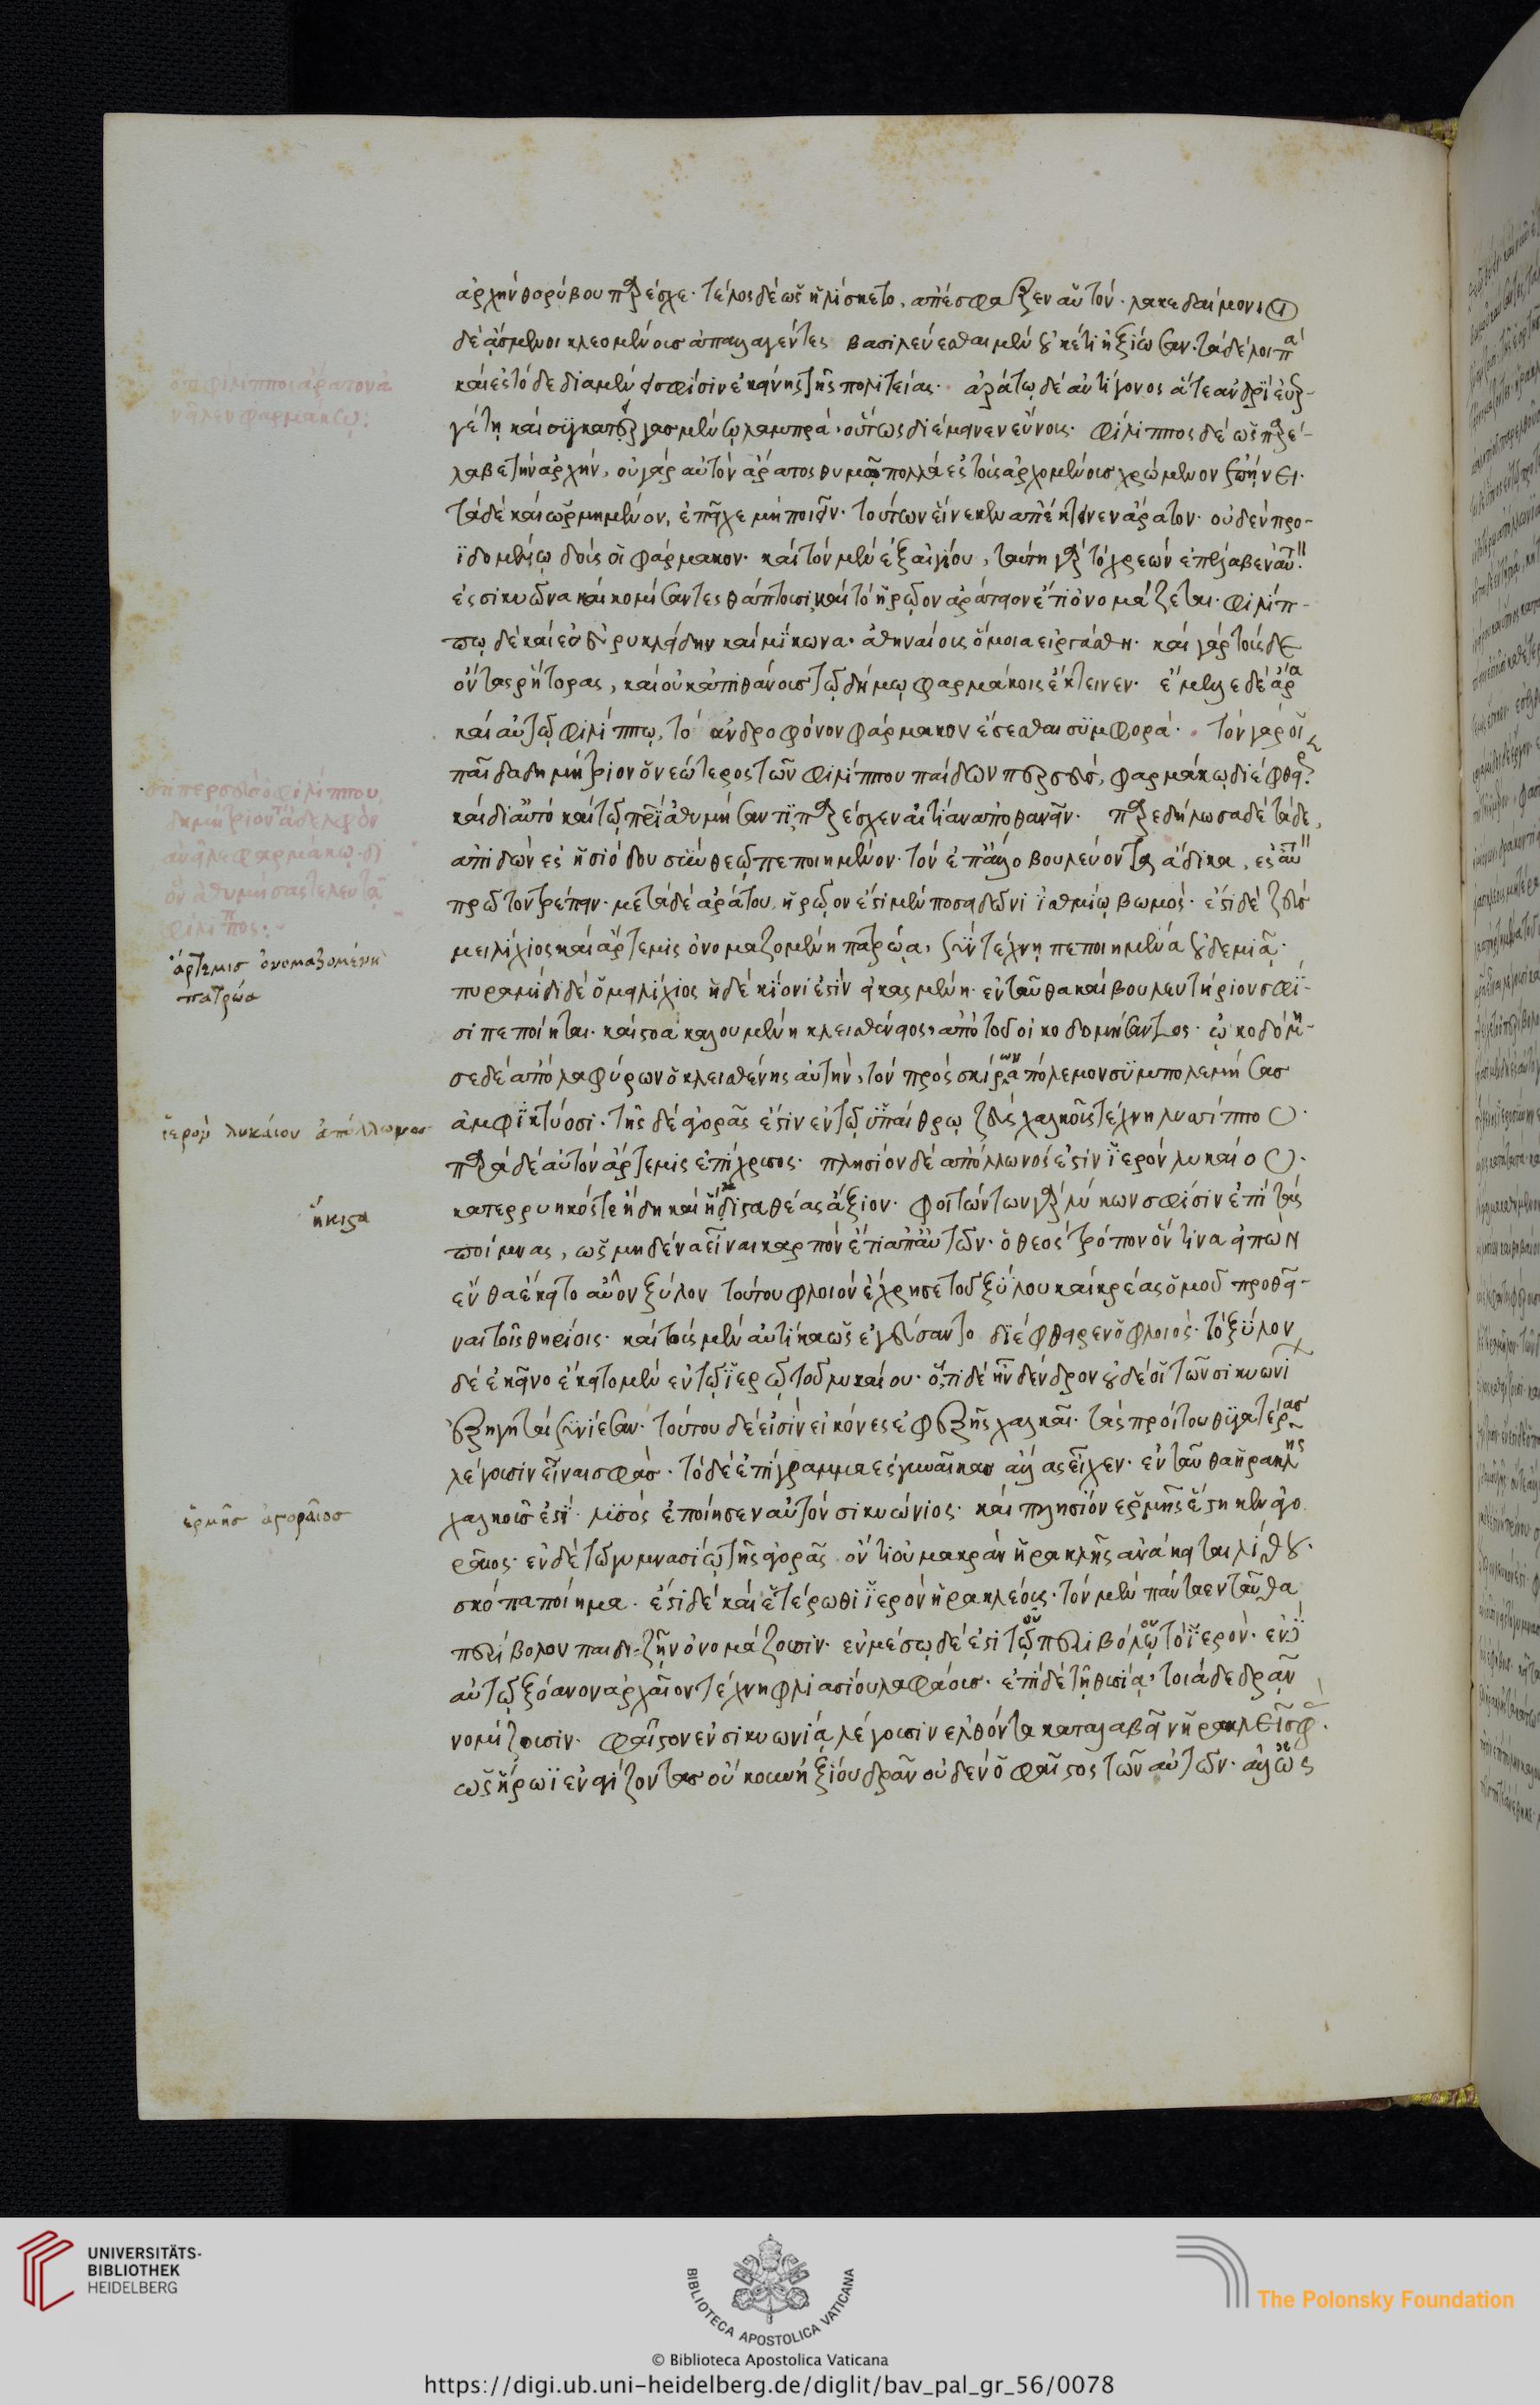 ἀρχὴν θορύβου παρέσχε· τέλος δὲ ὡς ἡλίσκετο, ἀπέσφαξεν αὑτόν· λακεδαιμόνιοι
δὲ ἄσμενοι κλεομένους ἀπαλλαγέντες βασιλεύεσθαι μὲν οὐκέτι ἠξίωσαν· τὰ δὲ λοιπὰ
καὶ ἐς τόδε διαμένει σφίσιν ἐκείνης τῆς πολιτείας· ἀράτῳ δὲ ἀντίγονος ἅτε ἀνδρὶ εὐερ-
γέτῃ καὶ συγκατειργασμένῳ λαμπρά· οὕτως διέμεινεν εὔνους· φίλιππος δὲ ὡς παρέ-
λαβε τὴν ἀρχήν, οὐ γὰρ αὐτὸν ἄρατος θυμῷ πολλὰ ἐς τοὺς ἀρχομένους χρώμενον ἐπῄνει·
τὰ δὲ καὶ ὡρμημένον, ἐπεῖχε μὴ ποιεῖν· τούτων εἵνεκεν ἀπέκτεινεν ἄρατον· οὐδὲν προ-
ϊδομένῳ δούς οἱ φάρμακον· καὶ τὸν μὲν ἐξ αἰγίου, ταύτῃ γὰρ τὸ χρεὼν ἐπέλαβεν αὐτ
ἐς σικυῶνα καὶ κομίσαντες θάπτουσι καὶ τὸ ἡρῷον ἀράτειον ἔτι ὀνομάζεται· φιλίπ-
πῳ δὲ καὶ ἐς εὐρυκλείδην καὶ μίκωνα· ἀθηναίους ὅμοια εἰργάσθη· καὶ γὰρ τούσδε
ὄντας ῥήτορας, καὶ οὐκ ἀπιθάνους τῷ δήμῳ φαρμάκοις ἔκτεινεν· ἔμελλε δὲ ἄρα
καὶ αὐτῷ φιλίππῳ, τὸ ἀνδροφόνον φάρμακον ἔσεσθαι συμφορά· τὸν γάρ οἱ
παῖδα δημήτριον ὁ νεώτερος τῶν φιλίππου παίδων περσεύς, φαρμάκῳ διέφθειρε
καὶ δι αὐτὸ καὶ τῷ πατρὶ ἀθυμήσαντι παρέσχεν αἰτίαν ἀποθανεῖν· παρεδήλωσα δὲ τάδε,
ἀπιδὼν ἐς ἡσιόδου σὺν θεῷ πεποιημένον· τὸν ἐπ ἄλλῳ βουλεύοντα ἄδικα, ἐς αὑτ
πρῶτον τρέπειν· μετὰ δὲ ἀράτου, ἡρῷον ἔστι μὲν ποσειδῶνι ἰσθμίῳ βωμός· ἔστι δὲ ζεὺς
μειλίχιος καὶ ἄρτεμις ὀνομαζομένη πατρῴα, σὺν τέχνῃ πεποιημένα οὐδεμιᾷ·
πυραμίδι δὲ ὁ μειλίχιος ἡ δὲ κίονί ἐστιν εἰκασμένη· ἐνταῦθα καὶ βουλευτήριον σφί-
σι πεποίηται· καὶ στοὰ καλουμένη κλεισθένειος, ἀπὸ τοῦ οἰκοδομήσαντος· ᾠκοδόμη-
σε δὲ ἀπὸ λαφύρων ὁ κλεισθένης αὐτὴν, τὸν πρὸς σκίρᾳ πόλεμον συμπολεμήσας
ἀμφικτύοσι· τῆς δὲ ἀγορᾶς ἐστιν ἐν τῷ ὑπαίθρῳ ζεὺς χαλκοῦς τέχνη λυσίππου·
παρὰ δὲ αὐτὸν ἄρτεμις ἐπίχρυσος· πλησίον δὲ ἀπόλλωνός ἐστιν ἱερὸν λυκαίου·
κατερρυηκός τε ἤδη καὶ ἥδιστα θέας ἄξιον· φοιτώντων γὰρ λύκων σφίσιν ἐπὶ τὰς
ποίμνας, ὡς μηδένα εἶναι καρπὸν ἔτι ἀπ αὐτῶν· ὁ θεὸς τρόπον ὅντινα εἰπὼν
ἔνθα ἔκειτο αὖον ξύλον τούτου φλοιὸν ἔχρησε τοῦ ξύλου καὶ κρέας ὁμοῦ προθεῖ-
ναι τοῖς θηρίοις· καὶ τοὺς μὲν αὐτίκα ὡς ἐγεύσαντο διέφθειρεν ὁ φλοιός· τὸ ξύλον
δὲ ἐκεῖνο ἔκειτο μὲν ἐν τῷ ἱερῷ τοῦ λυκαίου· ὅ,τι δὲ ἦν δένδρον οὐδὲ οἱ τῶν σικυωνί
ἐξηγηταὶ συνίεσαν· τούτου δέ εἰσιν εἰκόνες ἐφεξῆς χαλκαῖ· τὰς προίτου θυγατέρας
λέγουσιν εἶναι σφᾶς· τὸ δὲ ἐπίγραμμα ἐς γυναῖκας ἄλλας εἶχεν· ἐνταῦθα ἡρακλῆς
χαλκοῦς ἐστί· λυσός ἐποίησεν αὐτὸν σικυώνιος· καὶ πλησίον ἑρμῆς ἕστηκεν ἀγο
ραῖος· ἐν δὲ τῷ γυμνασίῳ τῆς ἀγορᾶς ὄντι οὐ μακρὰν ἡρακλῆς ἀνάκειται λίθου·
σκόπα ποίημα· ἔστι δὲ καὶ ἑτέρωθι ἱερὸν ἡρακλέους· τὸν μὲν πάντα ἐνταῦθα
περίβολον παιδιζὴν ὀνομάζουσιν· ἐν μέσῳ δέ ἐστι τῷ περιβόλῳ τὸ ἱερόν· ἐν
αὐτῷ ξόανον ἀρχαῖον τέχνη φλιασίου λαφάους· ἐπὶ δὲ τῇ θυσίᾳ, τοιάδε δρᾶν
νομίζουσιν· φαῖστον ἐν σικυωνίᾳ λέγουσιν ἐλθόντα καταλαβεῖν ἡρακλεῖ σφ
ὡς ἥρωϊ ἐναγίζοντας οὔκουν ἠξίου δρᾶν οὐδὲν ὁ φαῖστος τῶν αὐτῶν· ἀλλ ὡς
ὅτι φίλιππος ἄρατον ἀ
νεῖλεν φαρμάκῳ:
ὅτι περσεὺς ὁ φιλίππου,
δημήτριον τὸν ἀδελφὸν
ἀνεῖλε φαρμάκῳ· δι
ὃν ἀθυμήσας τελευτᾷ
φίλιππος:
ἄρτεμισ ὀνομαζομένη
πατρώα
ἱερὸν λυκαίου ἀπόλλωνοσ
ἥκιστα
ἑρμῆσ ἀγοραῖοσ
UNIVERSITÄTS-
BIBLIOTHEK
HEIDELBERG
BIBLIOTECA APOSTOLICA VATICANA
The Polonsky Foundation
© Biblioteca Apostolica Vaticana
https://digi.ub.uni-heidelberg.de/diglit/bav_pal_gr_56/0078